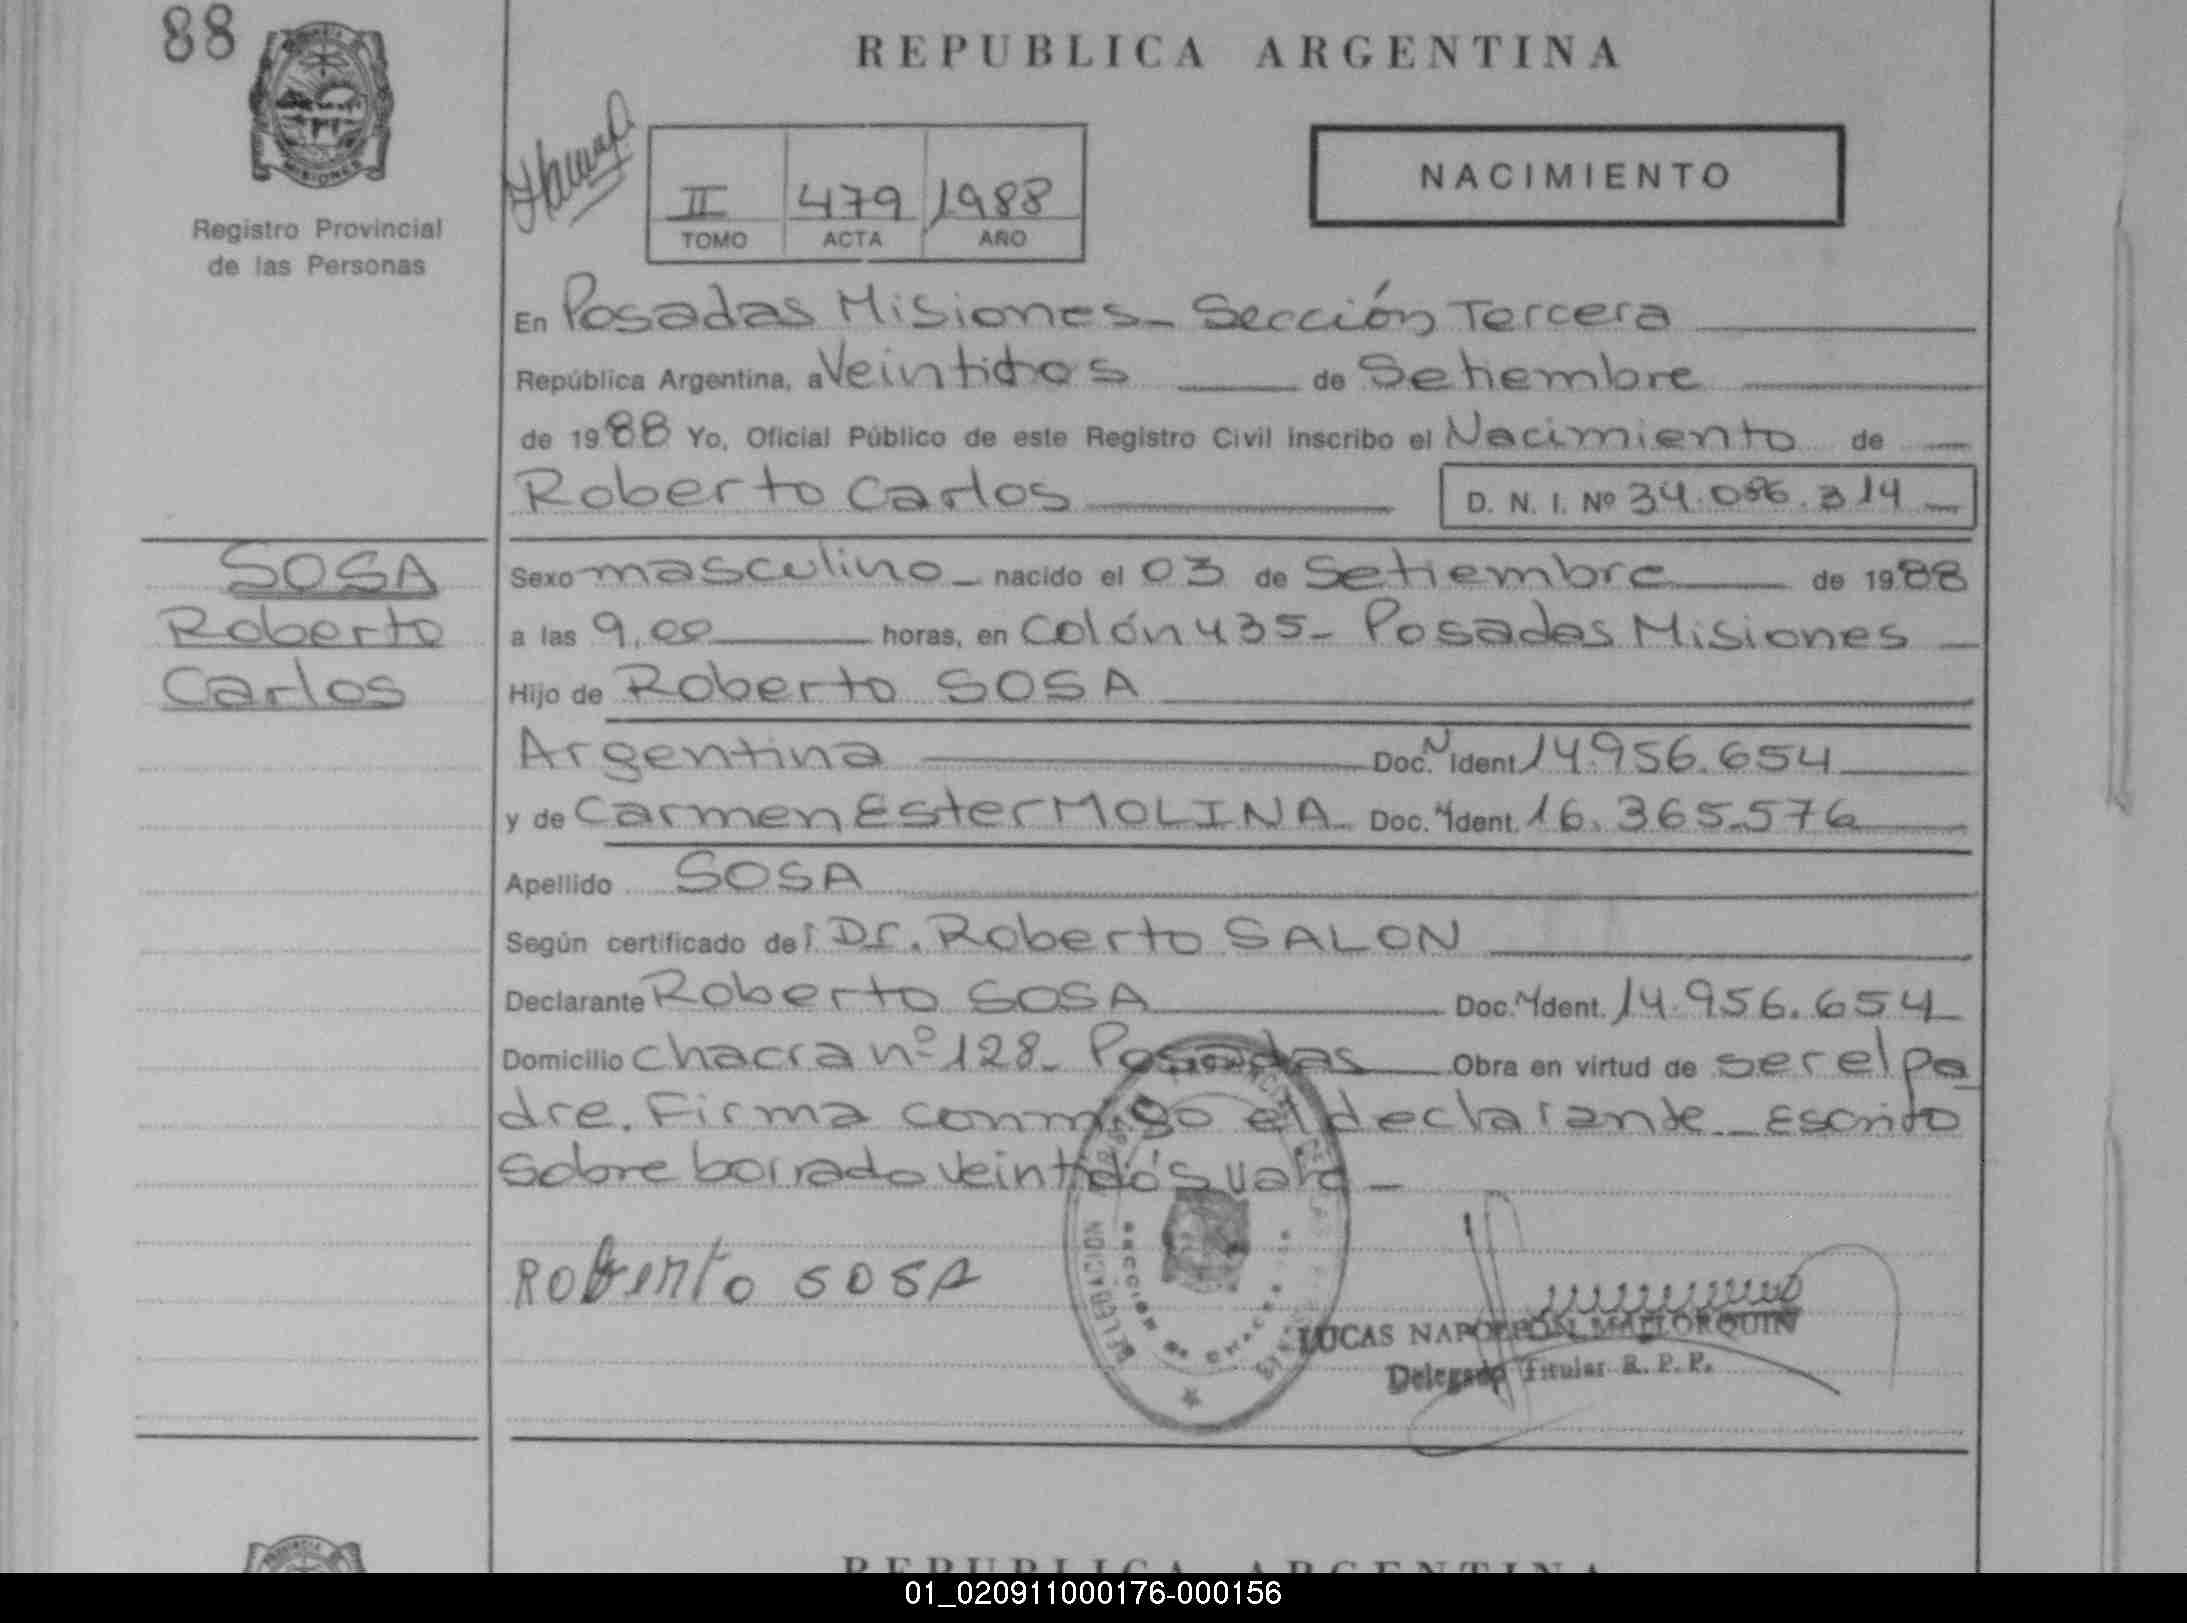 88
REPUBLICA ARGENTINA
MISIONES
Registro Provincial
de las Personas
II 479 1988
TOMO ACTA AÑO
NACIMIENTO
En Posadas Misiones- Sección Tercera
República Argentina, a Veintidos de Setiembre
de 1988 Yo, Oficial Público de este Registro Civil inscribo el Nacimiento de
Roberto Carlos
D. N. I. Nº 34.086.314
SOSA
Roberto
Carlos
Sexo masculino - nacido el 03 de Setiembre de 1988
a las 9,00 horas, en Colón 435- Posadas Misiones
Hijo de Roberto SOSA
Argentina Doc. N Ident 14.956.654
y de Carmen Ester MOLINA Doc. N Ident. 16.365.576
Apellido SOSA
Según certificado del Dr. Roberto SALON
Declarante Roberto SOSA Doc. N Ident. 14.956.654
Domicilio chacra nº 128- Posadas Obra en virtud de ser el pa
dre. Firma conmigo el declarante - Escrito
sobre borrado veintidós vale -
Roberto SOSA
DELEGACION
LUCAS NAPOLEON MALLORQUIN
Delegado Titular R. P. P.
PROVINCIA DE
REPUBLICA ARGENTINA
01_020911000176-000156